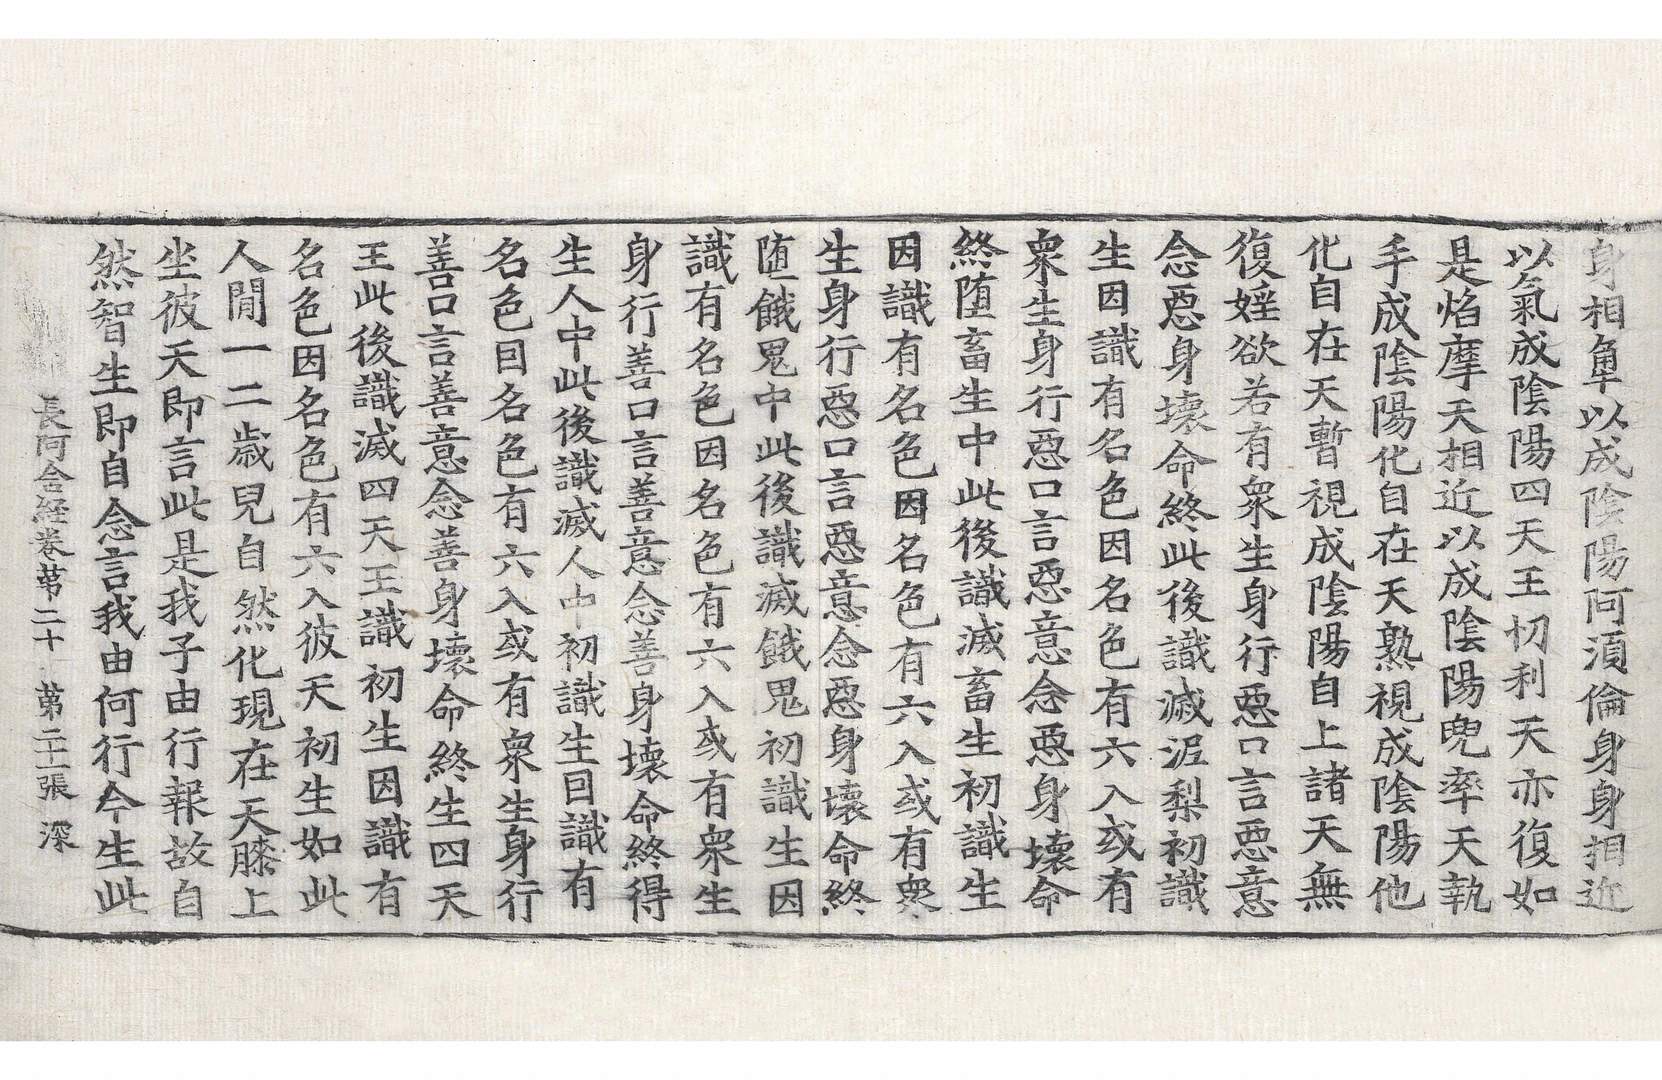 身相觸以成陰陽阿須倫身身相近
以氣成陰陽四天王忉利天亦復如
是焰摩天相近以成陰陽兜率天執
手成陰陽化自在天熟視成陰陽他
化自在天暫視成陰陽自上諸天無
復婬欲若有衆生身行惡口言惡意
念惡身壞命終此後識滅泥梨初識
生因識有名色因名色有六入或有
衆生身行惡口言惡意念惡身壞命
終墮畜生中此後識滅畜生初識生
因識有名色因名色有六入或有衆
生身行惡口言惡意念惡身壞命終
墮餓鬼中此後識滅餓鬼初識生因
識有名色因名色有六入或有衆生
身行善口言善意念善身壞命終得
生人中此後識滅人中初識生因識有
名色因名色有六入或有衆生身行
善口言善意念善身壞命終生四天
王此後識滅四天王識初生因識有
名色因名色有六入彼天初生如此
人間一二歲兒自然化現在天膝上
坐彼天即言此是我子由行報故自
然智生即自念言我由何行今生此
長阿含經卷第二十 第二十張 深